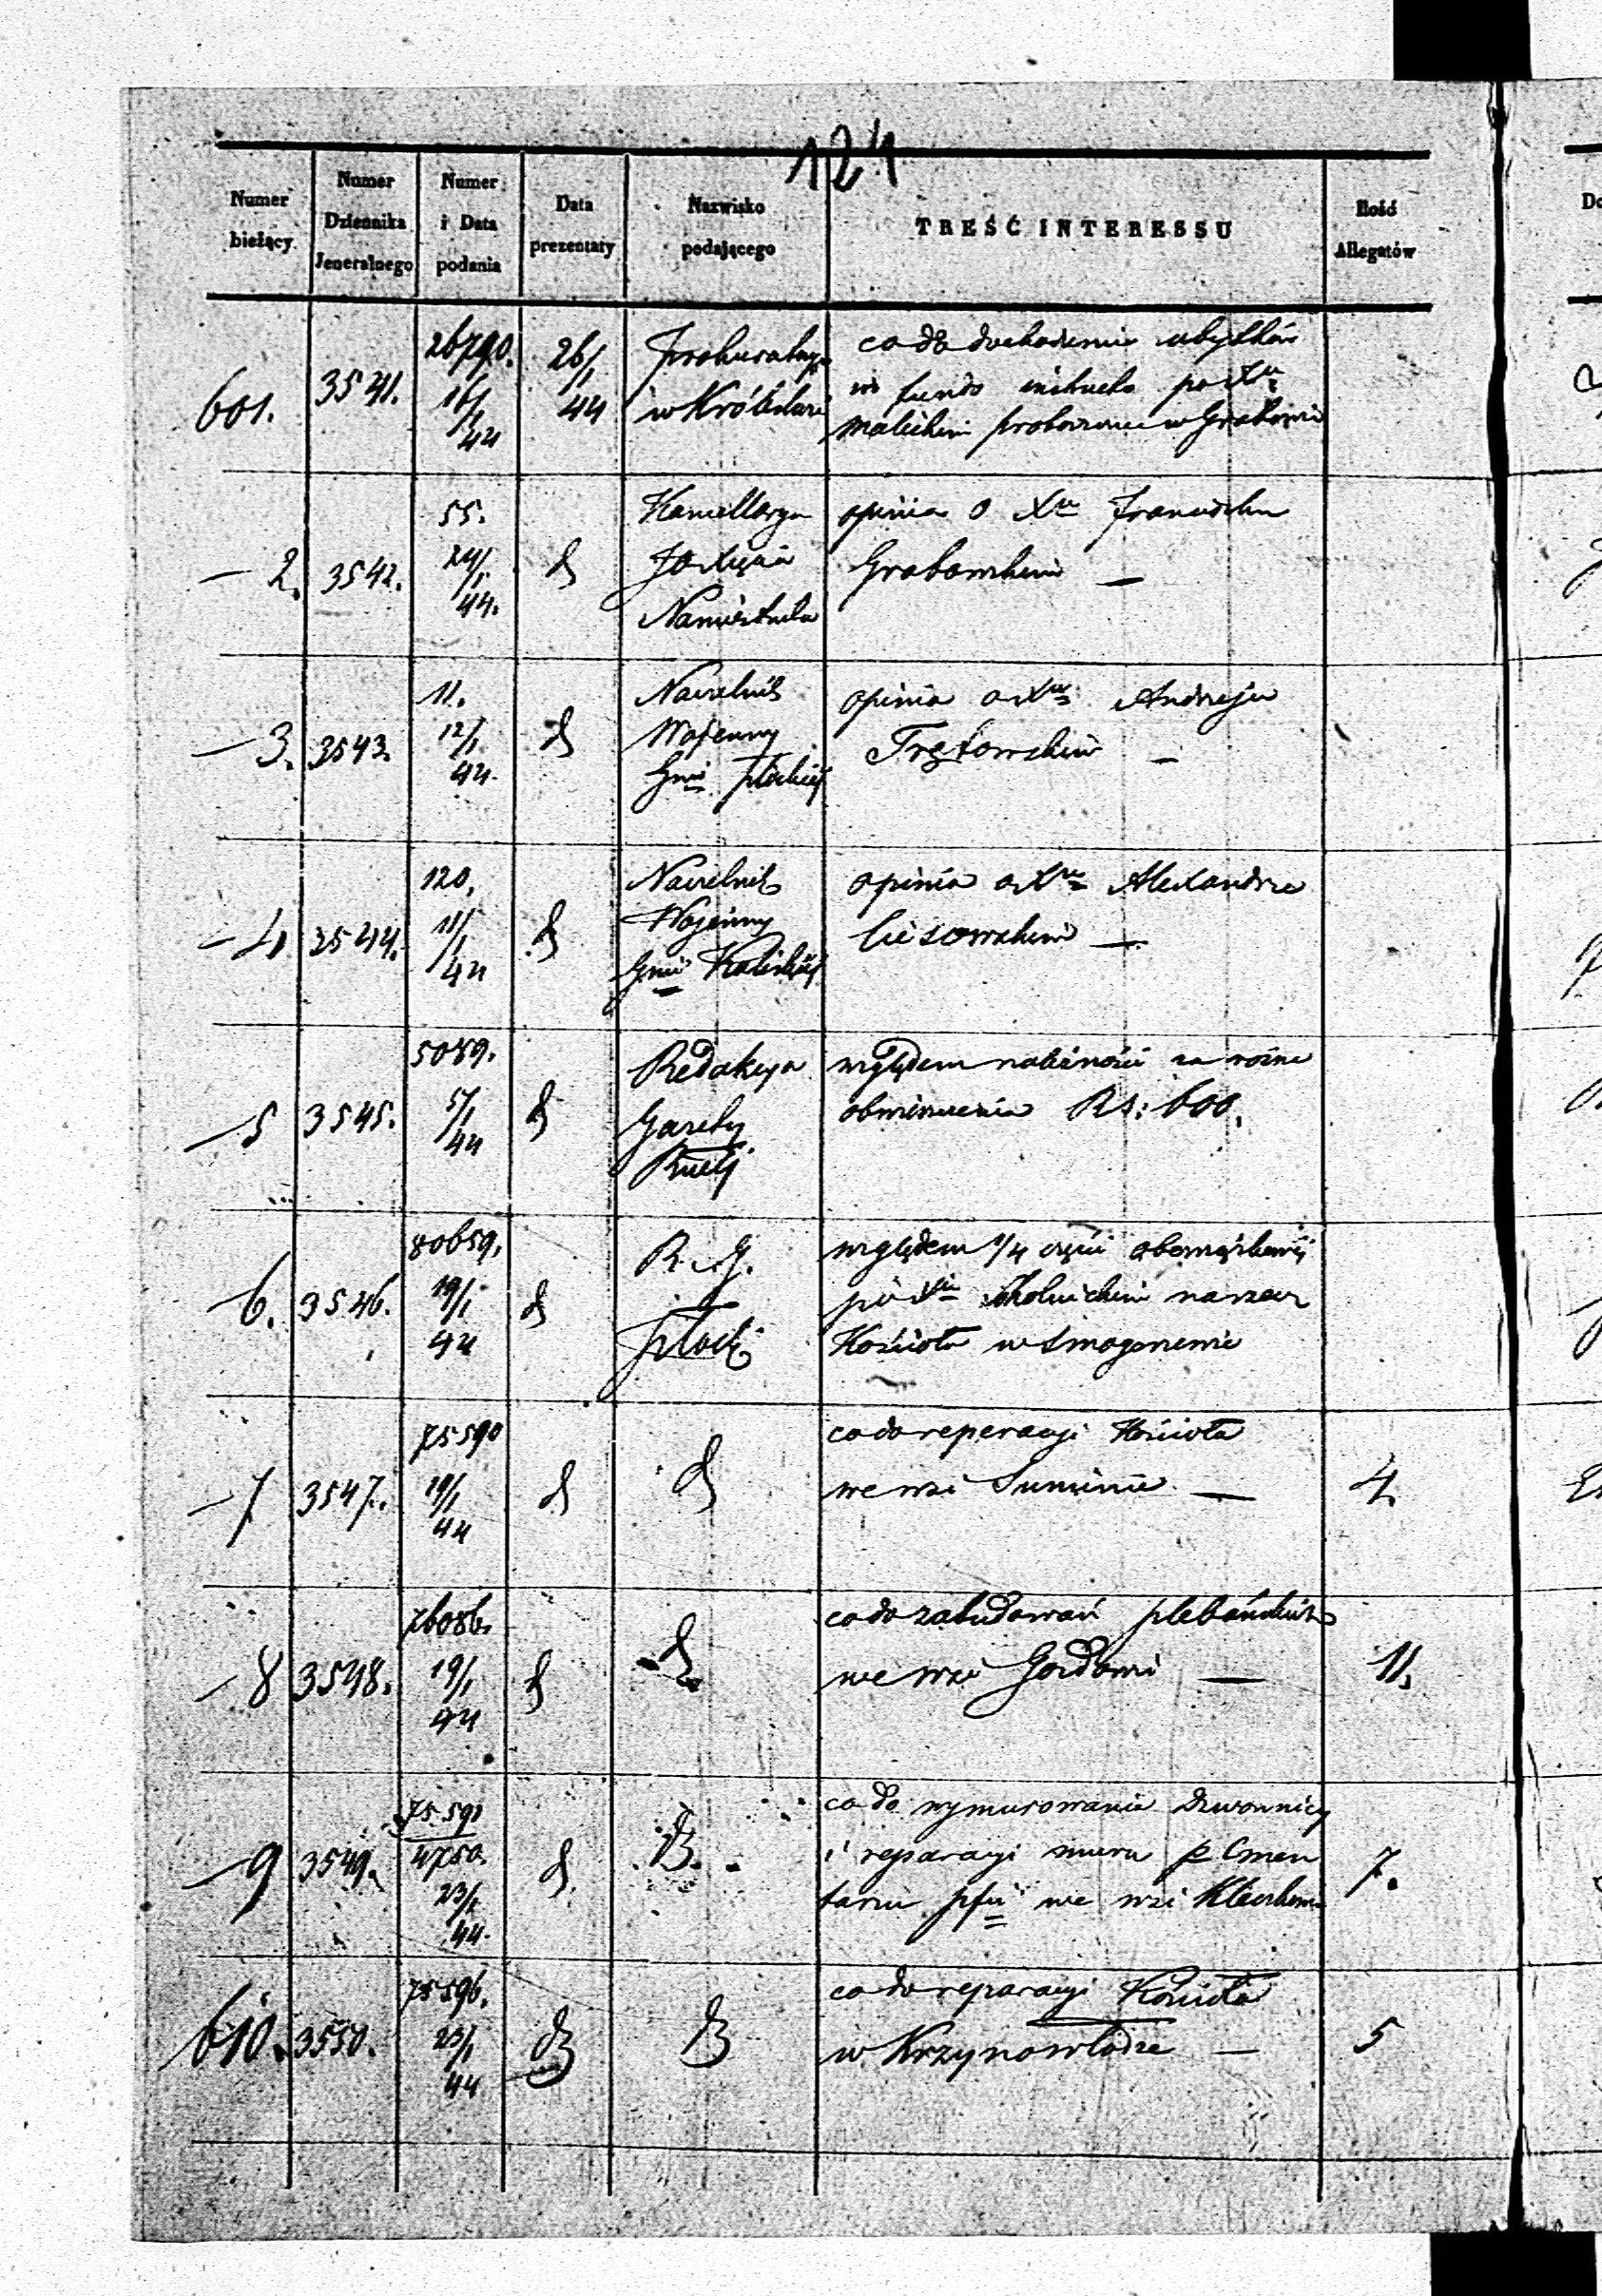 124
Numer bieżący
Numer Dziennika Jeneralnego
Numer i Data podania
Data prezentaty
Nazwisko podającego
TREŚĆ INTERESSU
Ilość Allegatów
601. 3541. 26790. 16/1 44 26/1 44
Prokurator
w Królestwie
co do dochodzenia ubytków
in fundo instructo po Xu
malickim proboszczu w Grabowie
2. 3542. 55. 24/1 44. d
Kancellarya
JO Xięcia
Namiestnika
opinia o Xu Franciszku
Grabowskim —
3. 3543. 11. 12/1 44. d
Naczelnik
Wojenny
Gnii Płockiej
opinia o Xu Andrzeju
Trętowskim —
4. 3544. 120. 11/1 44 d
Naczelnik
Wojenny
Gnii Kaliskiej
opinia o Xu Alexandrze
Ciesowskim —
5 3545. 5089. 5/1 44 d
Redakcya
Gazety
względem należności za różne
obwieszczenia Rs: 600.
6. 3546. 80659. 19/1 44 d
R. G.
Płocki
względem 1/4 części
po Xu na rzecz
Kościoła w
7 3547. 75590 19/1 44 d d
co do reperacyi Kościoła
we wsi Suminie — 4.
8 3548. 76086. 19/1 44 d d
co do zabudowań plebańskich
we wsi — 11.
9 3549. 75591 4750. 23/1 44. d d
co do wymurowania dzwonnicy
i reparacyi muru p Cmen
tarzu pfii we wsi 7.
610. 3550. 75596. 23/1 44 d d
co do reparacyi Kościoła
w Krzynowłodze — 5